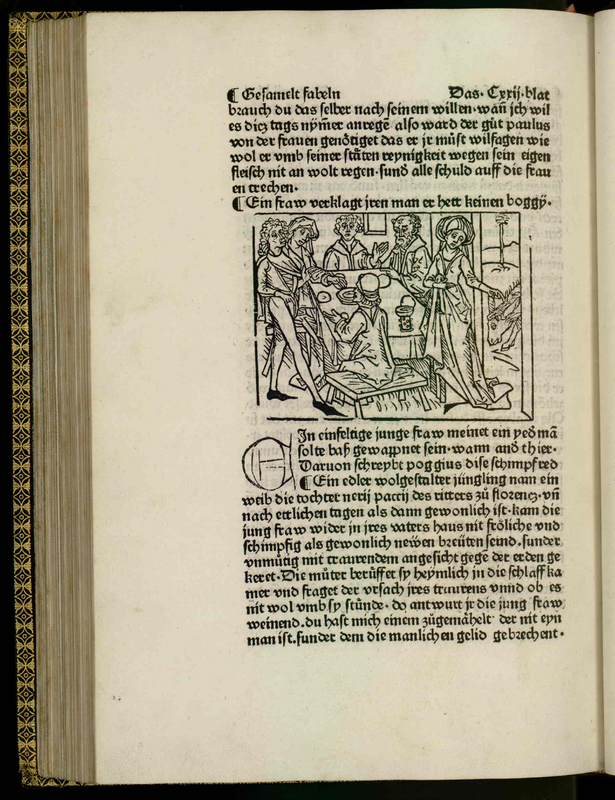 ¶ Gesamelt fabeln Das· Cxxij·blat
brauch du das selber nach seinem willen·wañ jch wil
es diez tags nym̃er anregẽ also ward der gůt paulus
von der frauen genötiget das er jr můst wilfagen wie
wol er vmb seiner stäten reynigkeit wegen sein eigen
fleisch nit an wolt regen·sund̕ alle schuld auff die frau
en trechen·
¶ Ein fraw verklagt jren man er hett keinen boggÿ·
EIn einfeltige junge fraw meinet ein yed̕ mã
solte baß gewappnet sein·wann and̕ thier·
Daruon schreybt poggius dise schimpfred
¶ Ein edler wolgestalter jüngling nam ein
weib die tochter nerij paccij des ritters zů florencz·vñ
nach ettlichen tagen als dann gewonlich ist·kam die
jung fraw wider in jres vaters haus nit fröliche vnd
schimpfig als gewonlich newen breüten seind·sunder
vnmůtig mit traurendem angesicht gegẽ der erden ge
keret·Die můter berůffet sy heymlich in die schlaff ka
mer vnd fraget der vrsach jres traurens vnnd ob es
nit wol vmb sy stünde· do antwurt jr die jung fraw
weinend·du hast mich einem zůgemähelt der nit eyn
man ist·sunder dem die manlichen gelid gebrechent·